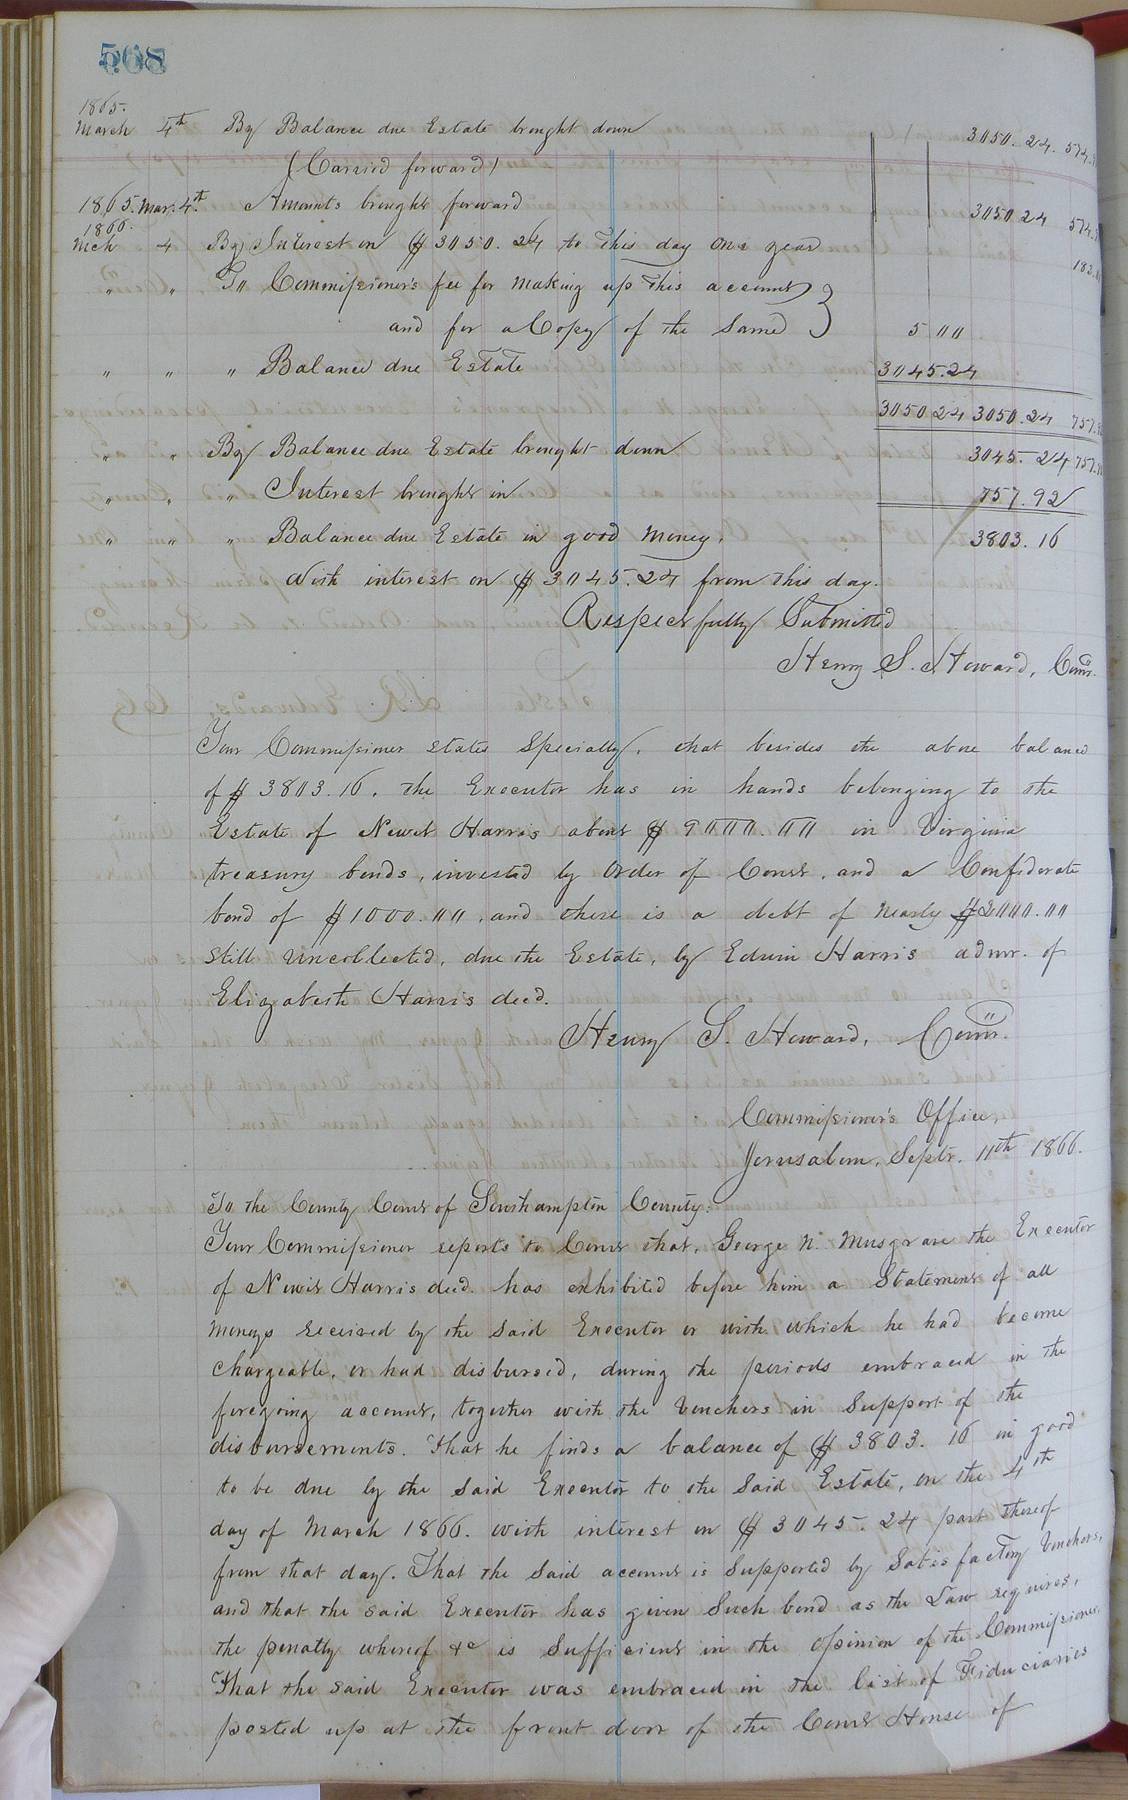 568
1865.
March 4th By Balance due Estate brought down 3050.24. 574.
(Carried forward)
1865. Mar. 4th. Amounts brought forward 3050.24 574.
1866.
Mch 4 By Interest on $3050.24 to this day one year 182.
" " To Commissioner's fee for making up this account }
and for a Copy of the same } 5 00
" " " Balance due Estate 3045.24
3050 24 3050.24 757.
" " By Balance due Estate brought down 3045.24 757.
" " " Interest brought in 757.92
" " " Balance due Estate in good money, 3803.16
With interest on $3045.24 from this day.
Respectfully Submitted
Henry S. Howard, Comr.
Your Commissioner states specially, that besides the above balance
of $3803.16, the Executor has in hands belonging to the
Estate of Newit Harris about $9000.00 in Virginia
treasury bonds, invested by order of Court, and a Confederate
bond of $1000.00, and there is a debt of nearly $2000.00
still uncollected, due the Estate, by Edwin Harris admr. of
Elizabeth Harris decd.
Henry S. Howard, Comr.
Commissioner's Office,
Jerusalem, Septr. 11th 1866.
To the County Court of Southampton County:
Your Commissioner reports to Court that, George N. Musgrave the Executor
of Newit Harris decd. has exhibited before him a Statement of all
moneys received by the said Executor or with which he had become
chargeable, or had disbursed, during the periods embraced in the
foregoing account, together with the Vouchers in support of the
disbursements. That he finds a balance of $3803.16 in good
to be due by the said Executor to the said Estate, on the 4th
day of March 1866. with interest on $3045.24 part thereof
from that day. That the said account is supported by Satisfactory Vouchers,
and that the said Executor has given such bond as the Law requires,
the penalty whereof &c is sufficient in the opinion of the Commissioner.
That the said Executor was embraced in the list of Fiduciaries
posted up at the front door of the Court House of